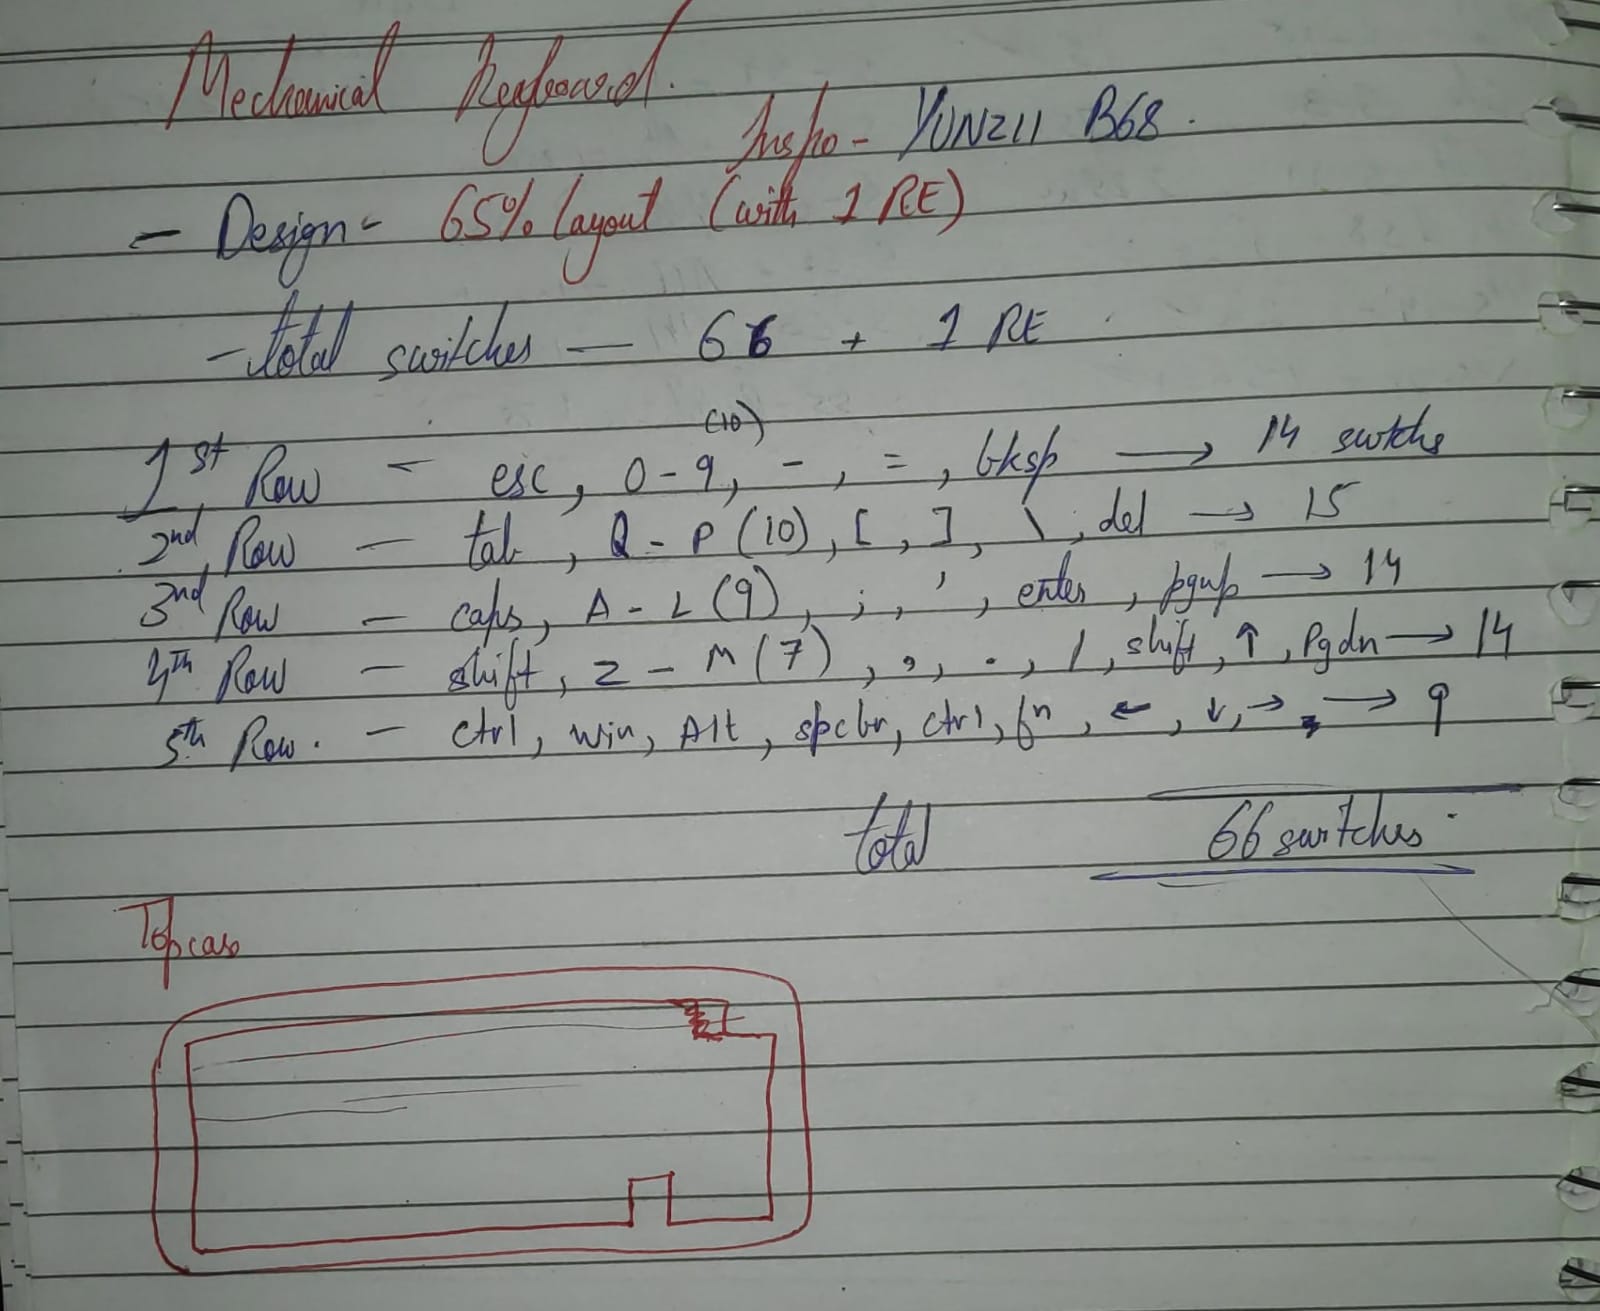 Mechanical Keyboard.
Inspo - YUNZII B68.
- Design - 65% layout (with 1 RE)
- total switches — 66 + 1 RE
(10)
1st Row - esc, 0-9, -, =, bksp → 14 swtchs
2nd Row - tab, Q-P (10), [, ], \, del → 15
3nd Row - caps, A-L (9), ;, ', enter, pgup → 14
4th Row - shift, Z-M (7), ,, ., /, shift, ↑, Pgdn → 14
5th Row. - ctrl, win, Alt, spcbr, ctrl, fn, ←, ↓, → → 9
total 66 switches.
Top case